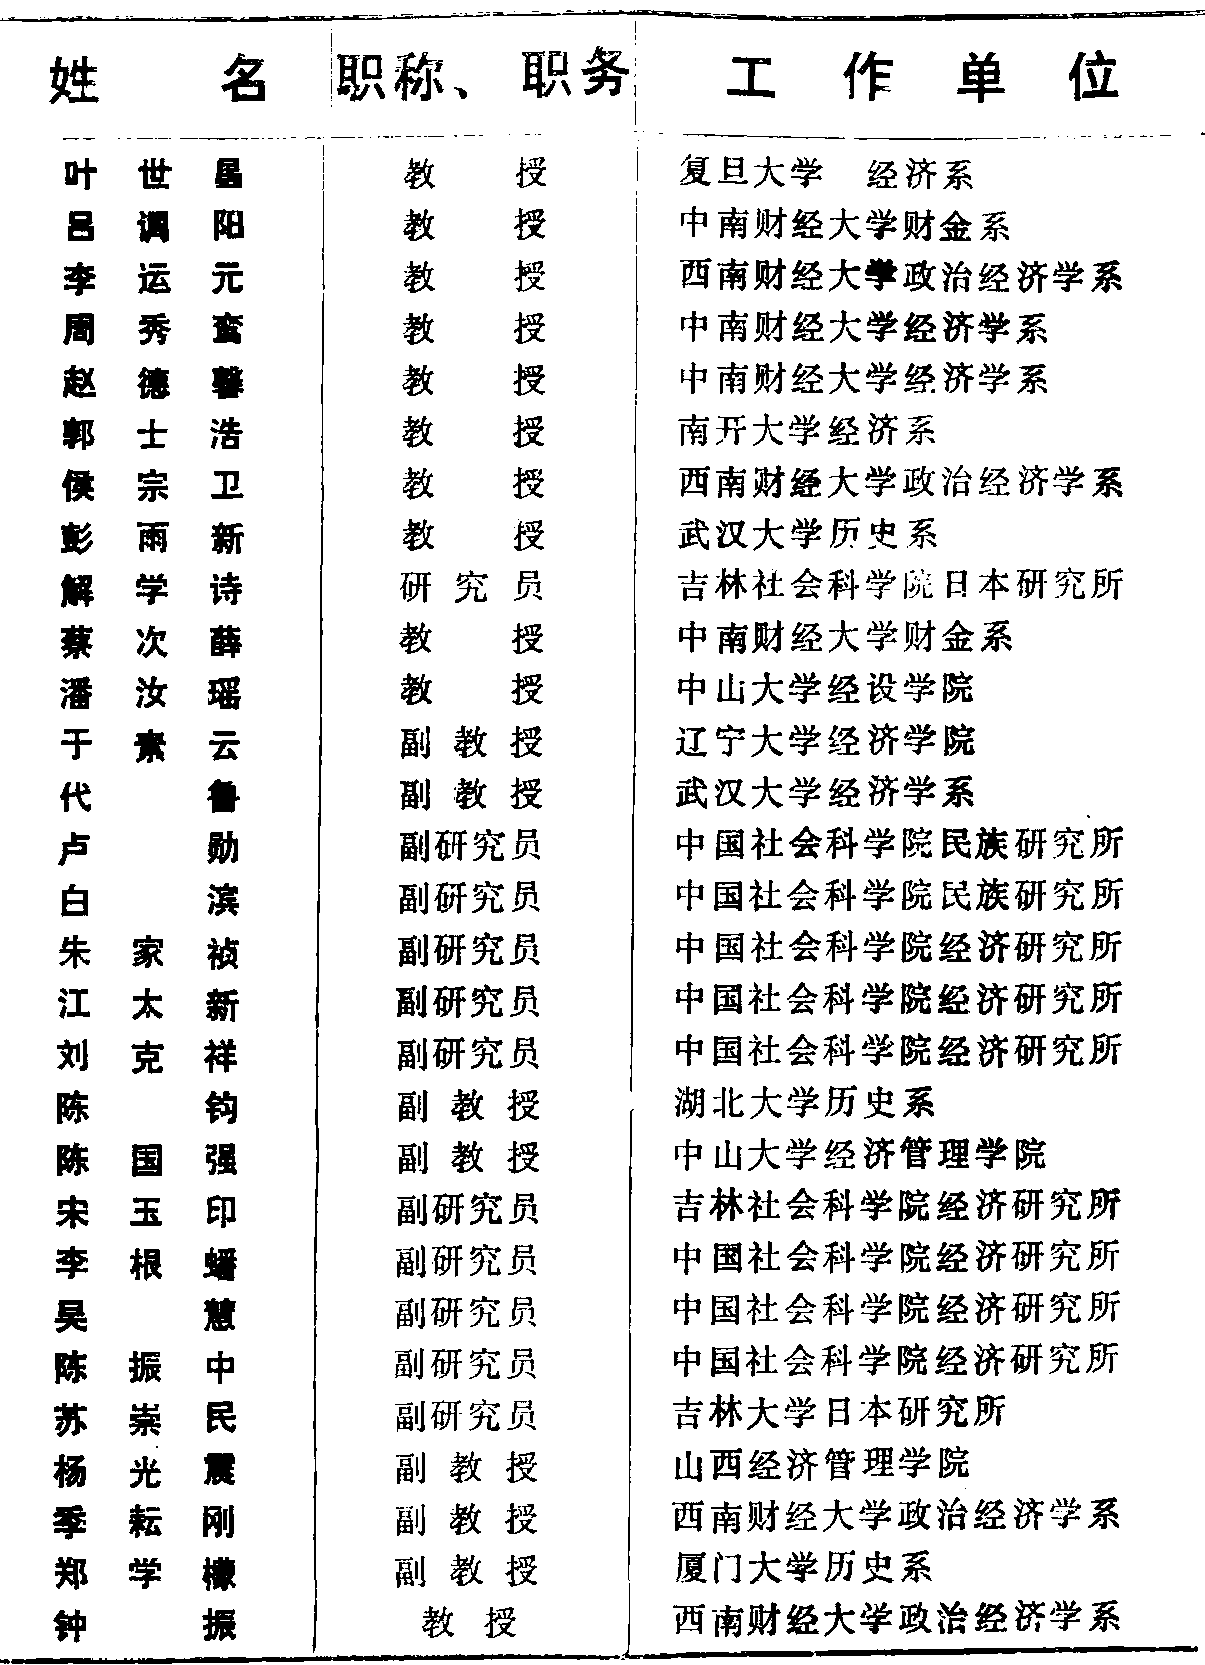 姓 名 职称、职务 工作单位
叶世昌 教授 复旦大学 经济系
吕调阳 教授 中南财经大学财金系
李运元 教授 西南财经大学政治经济学系
周秀鸾 教授 中南财经大学经济学系
赵德馨 教授 中南财经大学经济学系
郭士浩 教授 南开大学经济系
侯宗卫 教授 西南财经大学政治经济学系
彭雨新 教授 武汉大学历史系
解学诗 研究员 吉林社会科学院日本研究所
蔡次薛 教授 中南财经大学财金系
潘汝瑶 教授 中山大学经设学院
于素云 副教授 辽宁大学经济学院
代鲁 副教授 武汉大学经济学系
卢勋 副研究员 中国社会科学院民族研究所
白滨 副研究员 中国社会科学院民族研究所
朱家祯 副研究员 中国社会科学院经济研究所
江太新 副研究员 中国社会科学院经济研究所
刘克祥 副研究员 中国社会科学院经济研究所
陈钧 副教授 湖北大学历史系
陈国强 副教授 中山大学经济管理学院
宋玉印 副研究员 吉林社会科学院经济研究所
李根蟠 副研究员 中国社会科学院经济研究所
吴慧 副研究员 中国社会科学院经济研究所
陈振中 副研究员 中国社会科学院经济研究所
苏崇民 副研究员 吉林大学日本研究所
杨光震 副教授 山西经济管理学院
季耘刚 副教授 西南财经大学政治经济学系
郑学檬 副教授 厦门大学历史系
钟振 教授 西南财经大学政治经济学系